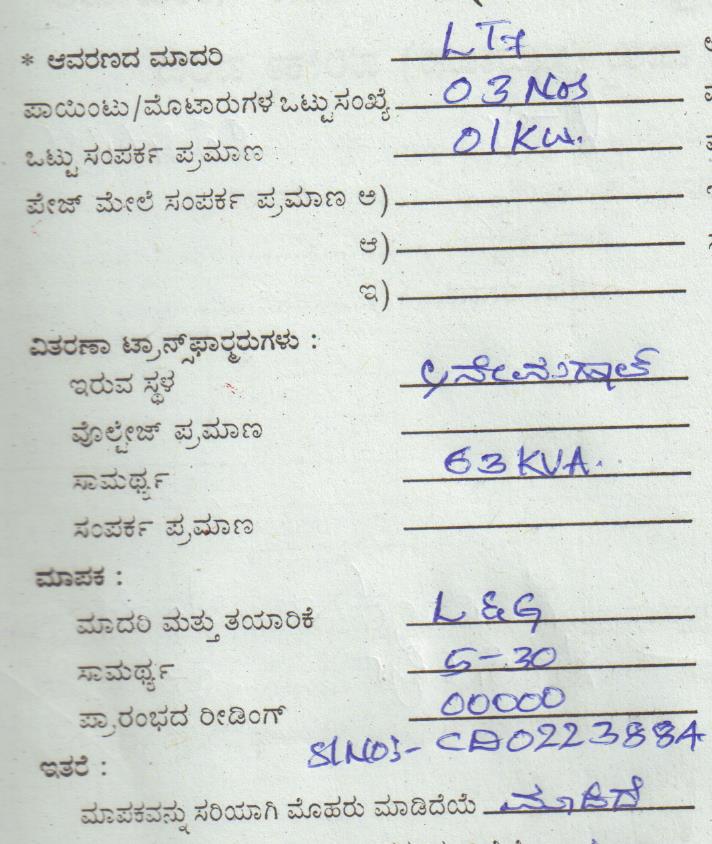 * ಆವರಣದ ಮಾದರಿ LT7
ಪಾಯಿಂಟು/ಮೊಟಾರುಗಳ ಒಟ್ಟು ಸಂಖ್ಯೆ 03 Nos
ಒಟ್ಟು ಸಂಪರ್ಕ ಪ್ರಮಾಣ 01 KW.
ಪೇಜ್ ಮೇಲೆ ಸಂಪರ್ಕ ಪ್ರಮಾಣ ಅ)
ಆ)
ಇ)
ವಿತರಣಾ ಟ್ರಾನ್ಸ್‌ಫಾರ್‍ಮರುಗಳು :
ಇರುವ ಸ್ಥಳ
ವೊಲ್ಟೇಜ್ ಪ್ರಮಾಣ
ಸಾಮರ್ಥ್ಯ 63 KVA.
ಸಂಪರ್ಕ ಪ್ರಮಾಣ
ಮಾಪಕ :
ಮಾದರಿ ಮತ್ತು ತಯಾರಿಕೆ L & G
ಸಾಮರ್ಥ್ಯ 5-30
ಪ್ರಾರಂಭದ ರೀಡಿಂಗ್ 00000
Sl No:- CD0223884
ಇತರೆ :
ಮಾಪಕವನ್ನು ಸರಿಯಾಗಿ ಮೊಹರು ಮಾಡಿದೆಯೆ ಮಾಡಿದೆ